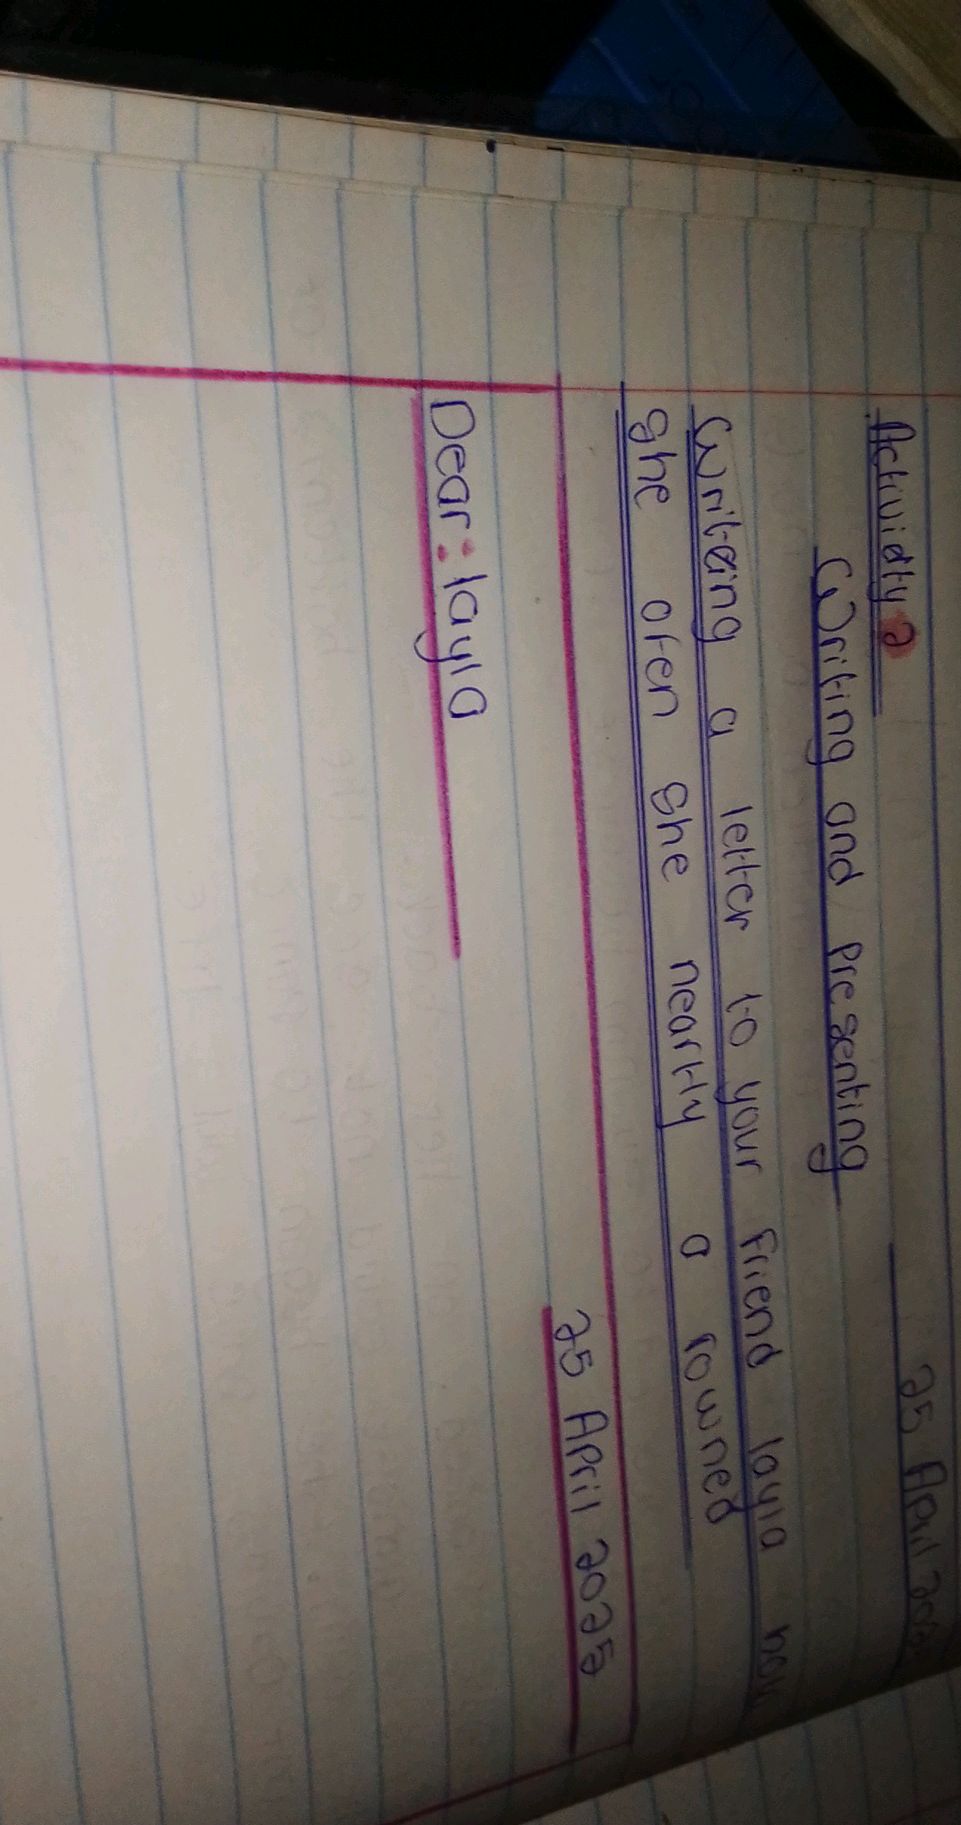 Actividty 2
25 April
Writing and presenting
Writeing a letter to your friend layla
she ofen she nearlly a rowned
25 April 2025
Dear: layla